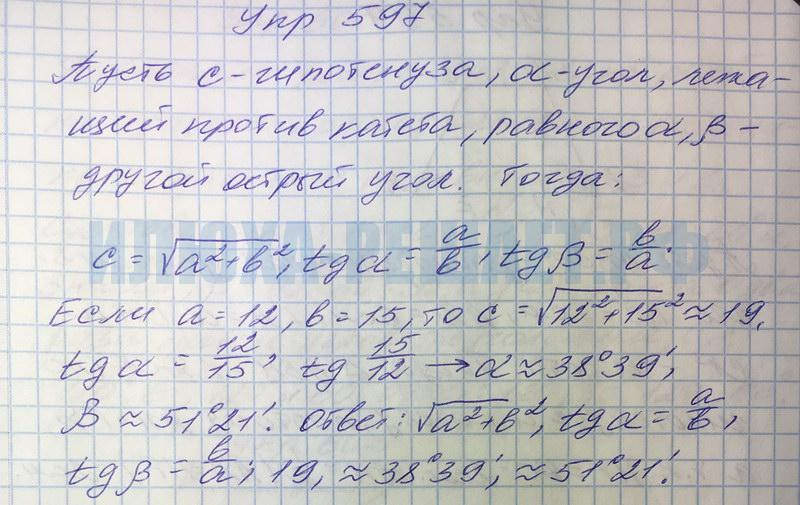 Упр 597
Пусть c - гипотенуза, α - угол, лежа-
щий против катета, равного α, β -
другой острый угол. Тогда:
ИЛЮХА.РЕШАЕТ.РФ
c = √a²+b², tgα = a/b, tgβ = b/a.
Если a = 12, b = 15, то c = √12²+15² ≈ 19,
tgα = 12/15, tg 15/12 → α ≈ 38°39',
β ≈ 51°21'. Ответ: √a²+b², tgα = a/b,
tgβ = b/a; 19, ≈ 38°39', ≈ 51°21'.